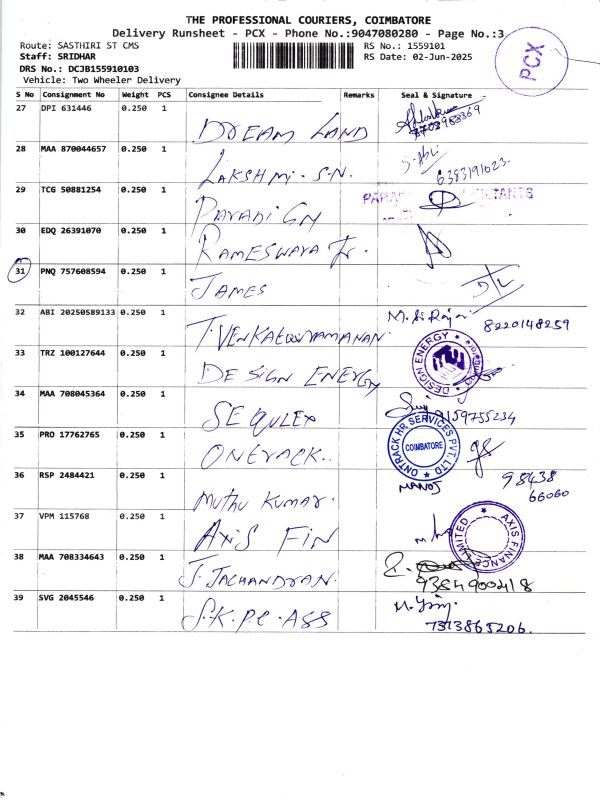 THE PROFESSIONAL COURIERS, COIMBATORE
Delivery Runsheet - PCX - Phone No.:9047080280 - Page No.:3
Route: SASTHIRI ST CMS
RS No.: 1559101
PCX
Staff: SRIDHAR
RS Date: 02-Jun-2025
DRS No.: DCJB155910103
Vehicle: Two Wheeler Delivery
S No Consignment No Weight PCS Consignee Details Remarks Seal & Signature
27 DPI 631446 0.250 1
DREAM LAND
28 MAA 870044657 0.250 1
LAKSHMI. S.N. 6383191023.
29 TCG 50881254 0.250 1
30 EDQ 26391070 0.250 1
RAMESWARA
31 PNQ 757608594 0.250 1
JAMES D/L
32 ABI 20250589133 0.250 1
8220148259
33 TRZ 100127644 0.250 1
DESIGN ENERGY DESIGN ENERGY
34 MAA 708045364 0.250 1
9159755234
35 PRO 17762765 0.250 1
ONTRACK HR SERVICES PVT. LTD
COIMBATORE
MANOJ
36 RSP 2484421 0.250 1
MUTHU KUMAR. 98438
66060
37 VPM 115768 0.250 1
AXIS FIN AXIS FINANCE LIMITED
38 MAA 708334643 0.250 1
9384900418
39 SVG 2045546 0.250 1
7373865206.